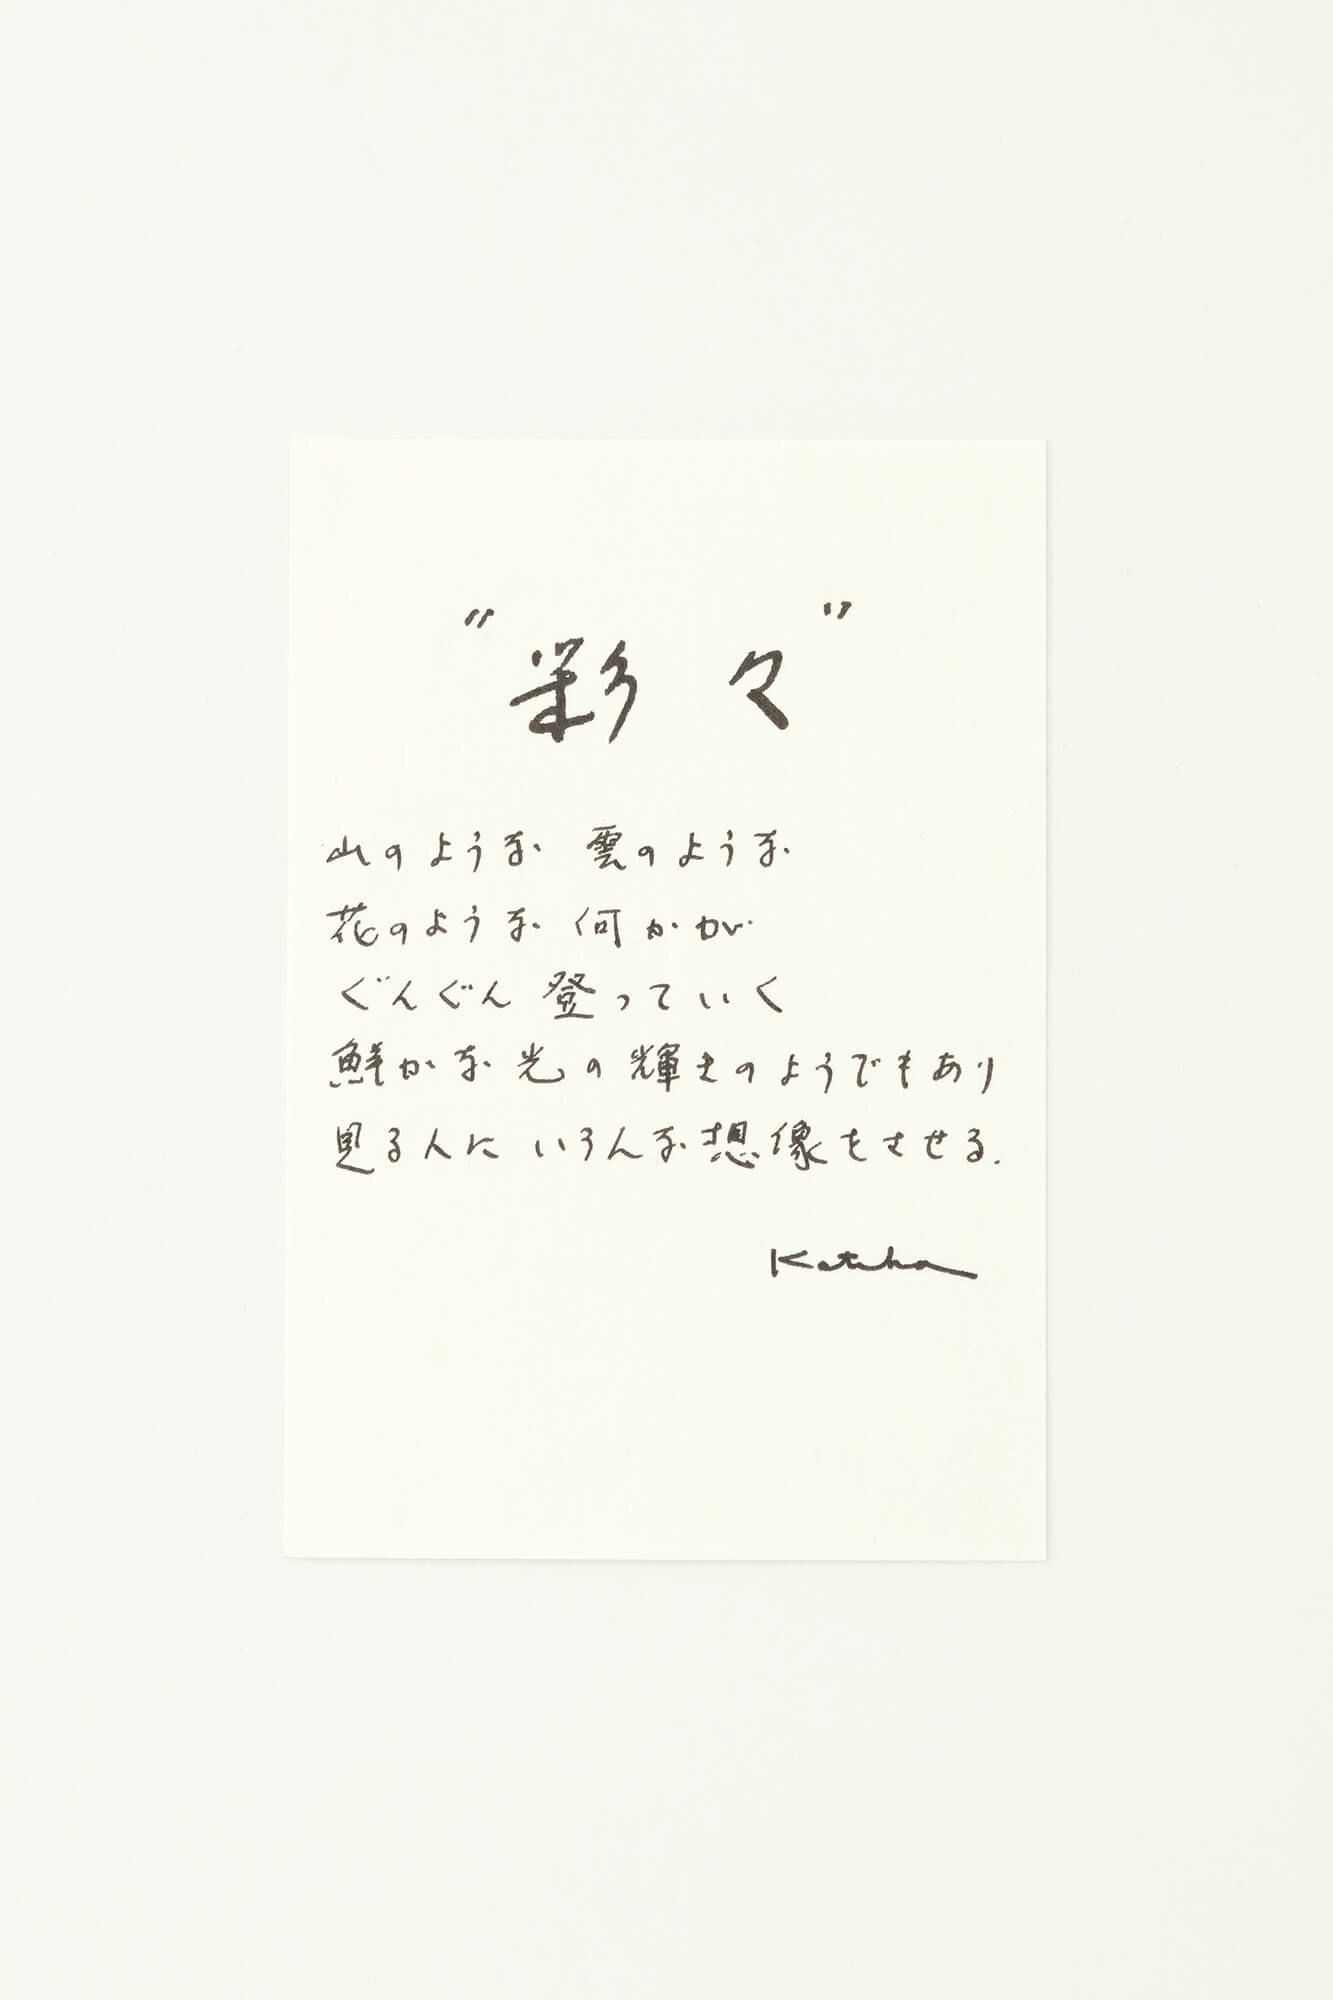 "彩々"
山のような 雲のような
花のような 何かが
ぐんぐん 登っていく
鮮かな 光の輝きのようでもあり
見る人に いろんな想像をさせる.